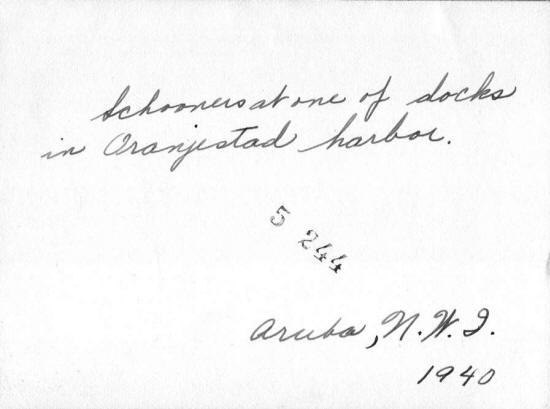 Schooners at one of docks
in Oranjestad harbor.
5 244
Aruba, N.W.I.
1940